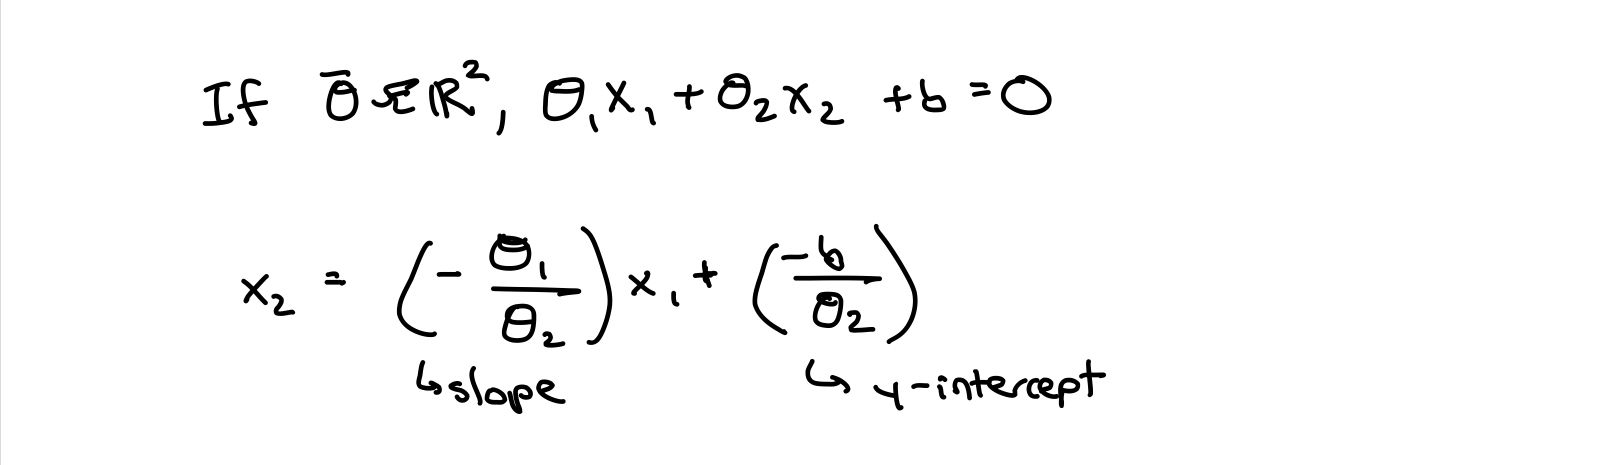 If θ̄ ∈ ℝ², θ₁x₁ + θ₂x₂ + b = 0
x₂ = (- θ₁/θ₂) x₁ + (-b/θ₂)
↳ slope ↳ y-intercept